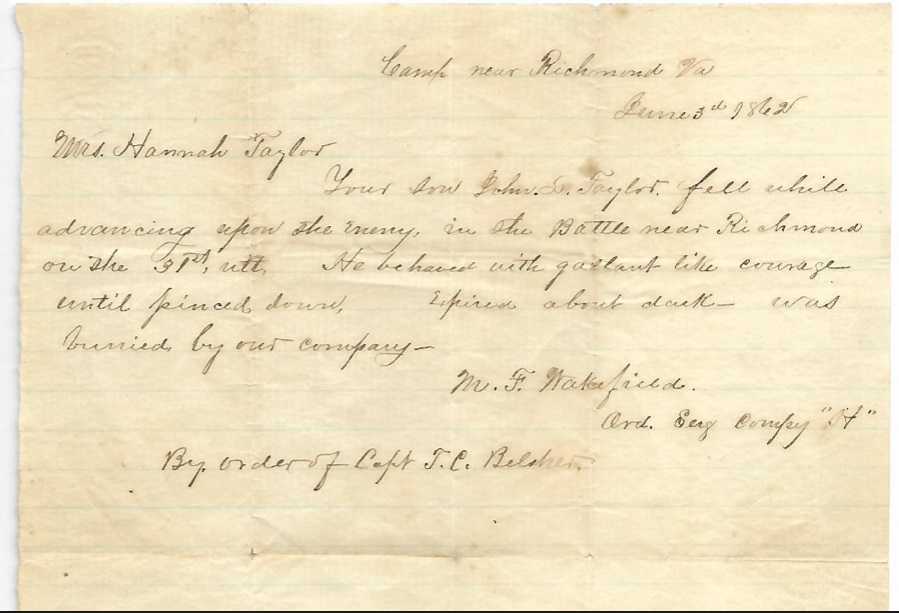 Camp near Richmond Va
June 3d 1862
Mrs. Hannah Taylor
Your son John. S. Taylor. fell while
advancing upon the Enemy, in the Battle near Richmond
on the 31st, ult. He behaved with gallant like courage
until pinced down, Expired about dark — was
buried by our company —
M. F. Wakefield.
Ord. Serg Compy "H"
By. order of Capt T. C. Belsher.